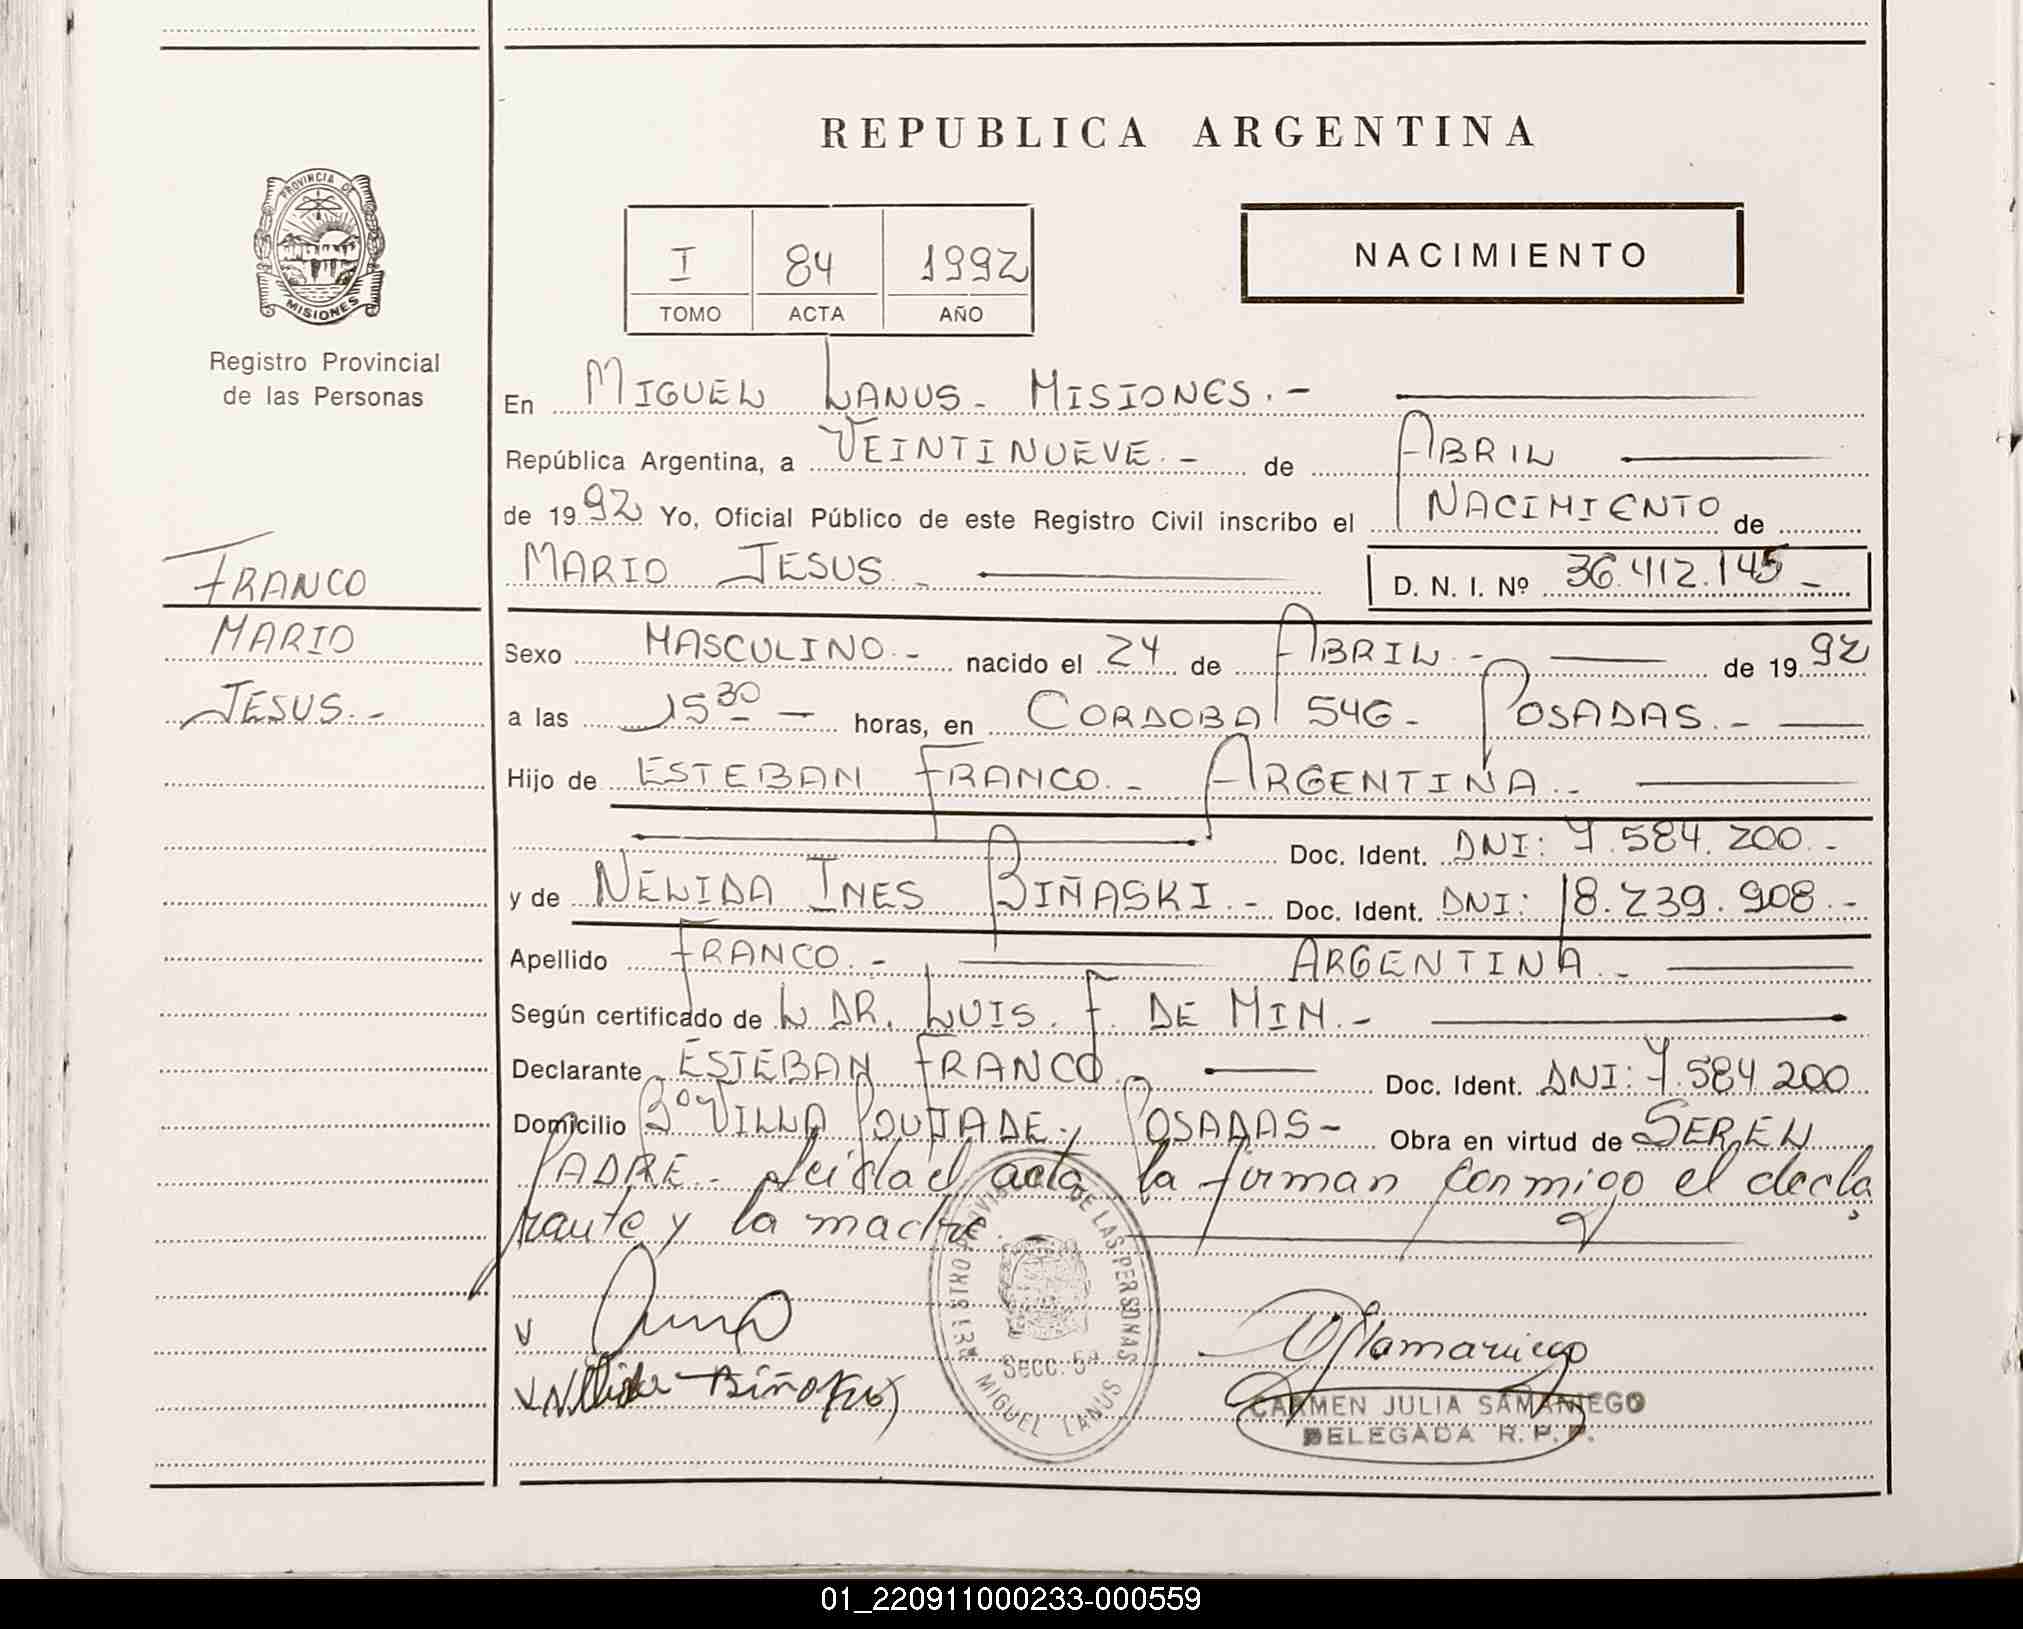 REPUBLICA ARGENTINA
PROVINCIA DE
MISIONES
Registro Provincial
de las Personas
I 84 1992
TOMO ACTA AÑO
NACIMIENTO
En MIGUEL LANUS - MISIONES.-
República Argentina, a VEINTINUEVE.- de ABRIL
de 1992 Yo, Oficial Público de este Registro Civil inscribo el NACIMIENTO de
MARIO JESUS.- D. N. I. Nº 36.412.145 -
FRANCO
MARIO
JESUS.-
Sexo MASCULINO.- nacido el 24 de ABRIL.- de 1992
a las 15 30 - horas, en CORDOBA 546 - POSADAS.-
Hijo de ESTEBAN FRANCO.- ARGENTINA.-
Doc. Ident. DNI: 7.584.200.-
y de NELIDA INES BIÑASKI.- Doc. Ident. DNI: 18.239.908.-
Apellido FRANCO.- ARGENTINA.-
Según certificado de L DR. LUIS. F. DE MIN.-
Declarante ESTEBAN FRANCO. Doc. Ident. DNI: 7.584.200
Domicilio Bº VILLA POUJADE, POSADAS- Obra en virtud de SER EL
PADRE.- Leida el acta la firman conmigo el decla
rante y la madre.
REGISTRO PROVINCIAL DE LAS PERSONAS
Secc. 5ª
MIGUEL LANUS
CARMEN JULIA SAMANIEGO
DELEGADA R. P. P.
01_220911000233-000559